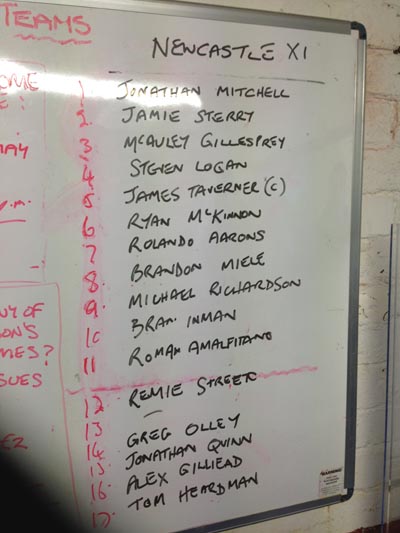 TEAMS
NEWCASTLE XI
1 JONATHAN MITCHELL
2 JAMIE STERRY
3 MCAULEY GILLESPREY
4 STEVEN LOGAN
5 JAMES TAVERNER (C)
6 RYAN MCKINNON
7 ROLANDO AARONS
8 BRANDON MIELE
9 MICHAEL RICHARDSON
10 BRAD INMAN
11 ROMAN AMALFITANO
12 REMIE STREET
13 GREG OLLEY
14 JONATHAN QUINN
15 ALEX GILLIEAD
16 TOM HEARDMAN
17
MAY
P.M.
NY OF
ON'S
MES?
SSUES